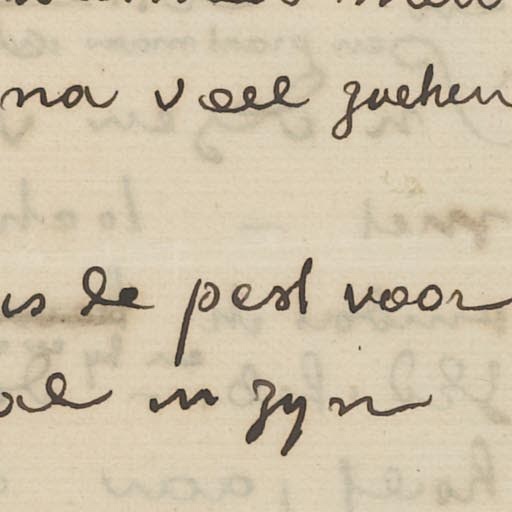 na veel zoeken
is de pest voor
in zyn